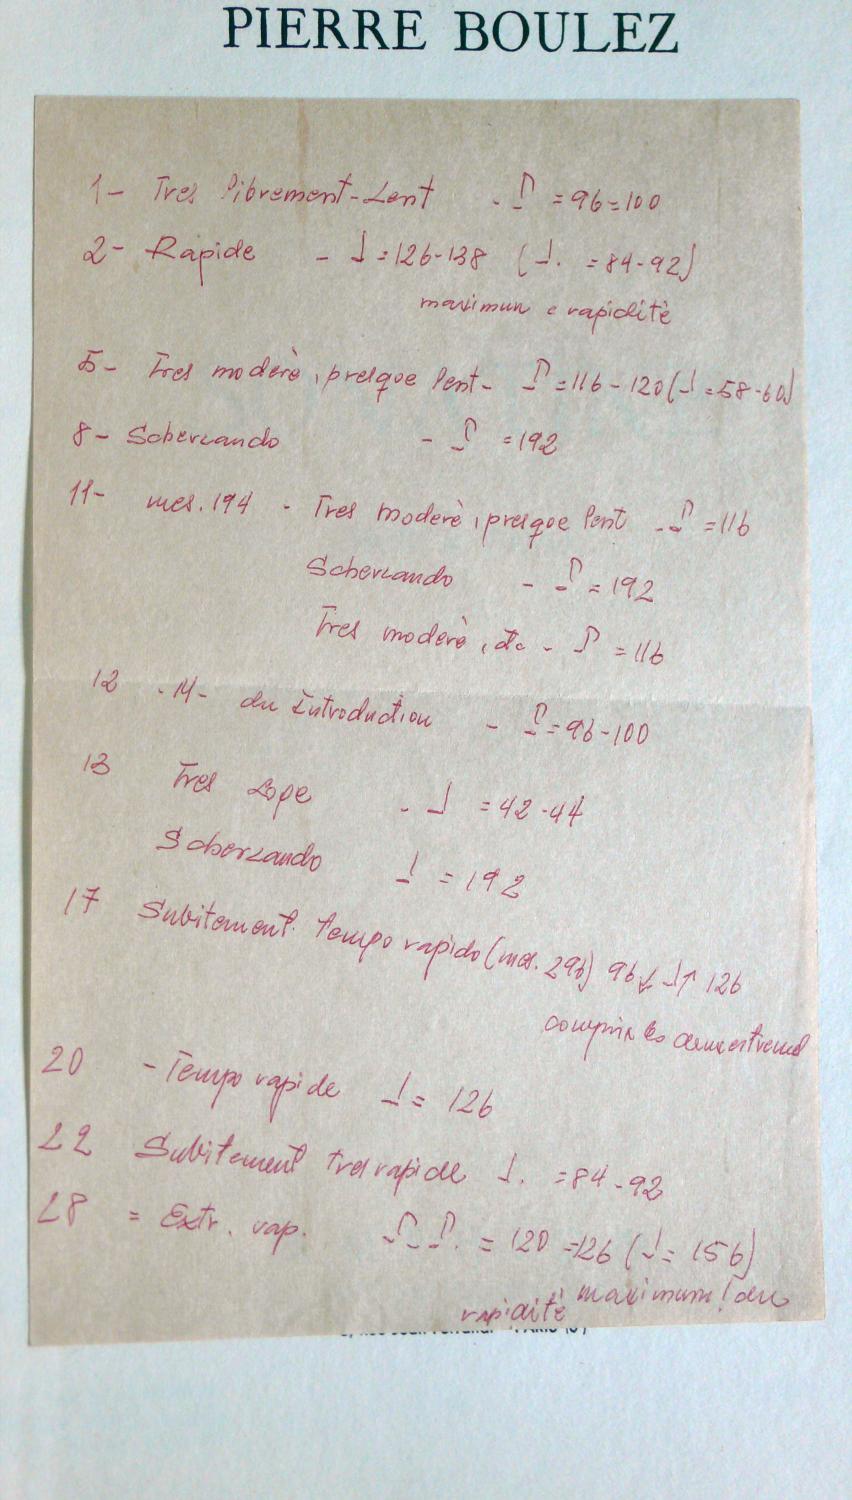 PIERRE BOULEZ
1- Tres librement-Lent - ♪ = 96-100
2- Rapide - ♩ = 126-138 (♩. = 84-92)
maximun e rapiditè
5- Tres moderè, presque lent- ♪ = 116-120 (♩ = 58-60)
8- Scherzando - ♪ = 192
11- mes. 194 - Tres moderè, presque lent - ♪ = 116
Scherzando - ♪ = 192
Tres moderè, etc - ♪ = 116
12 -14- du Introduction - ♪ = 96-100
13 Tres Large - ♩ = 42-44
Scherzando ♩ = 192
17 Subitement tempo rapido (mes. 296) 96 ↙ ♩ ↗ 126
20 - Tempo rapide ♩ = 126
22 Subitement tres rapide ♩. = 84-92
28 = Extr. rap. ♪ ♪. = 120 = 126 (♩ = 156)
rapiditè maximum! du